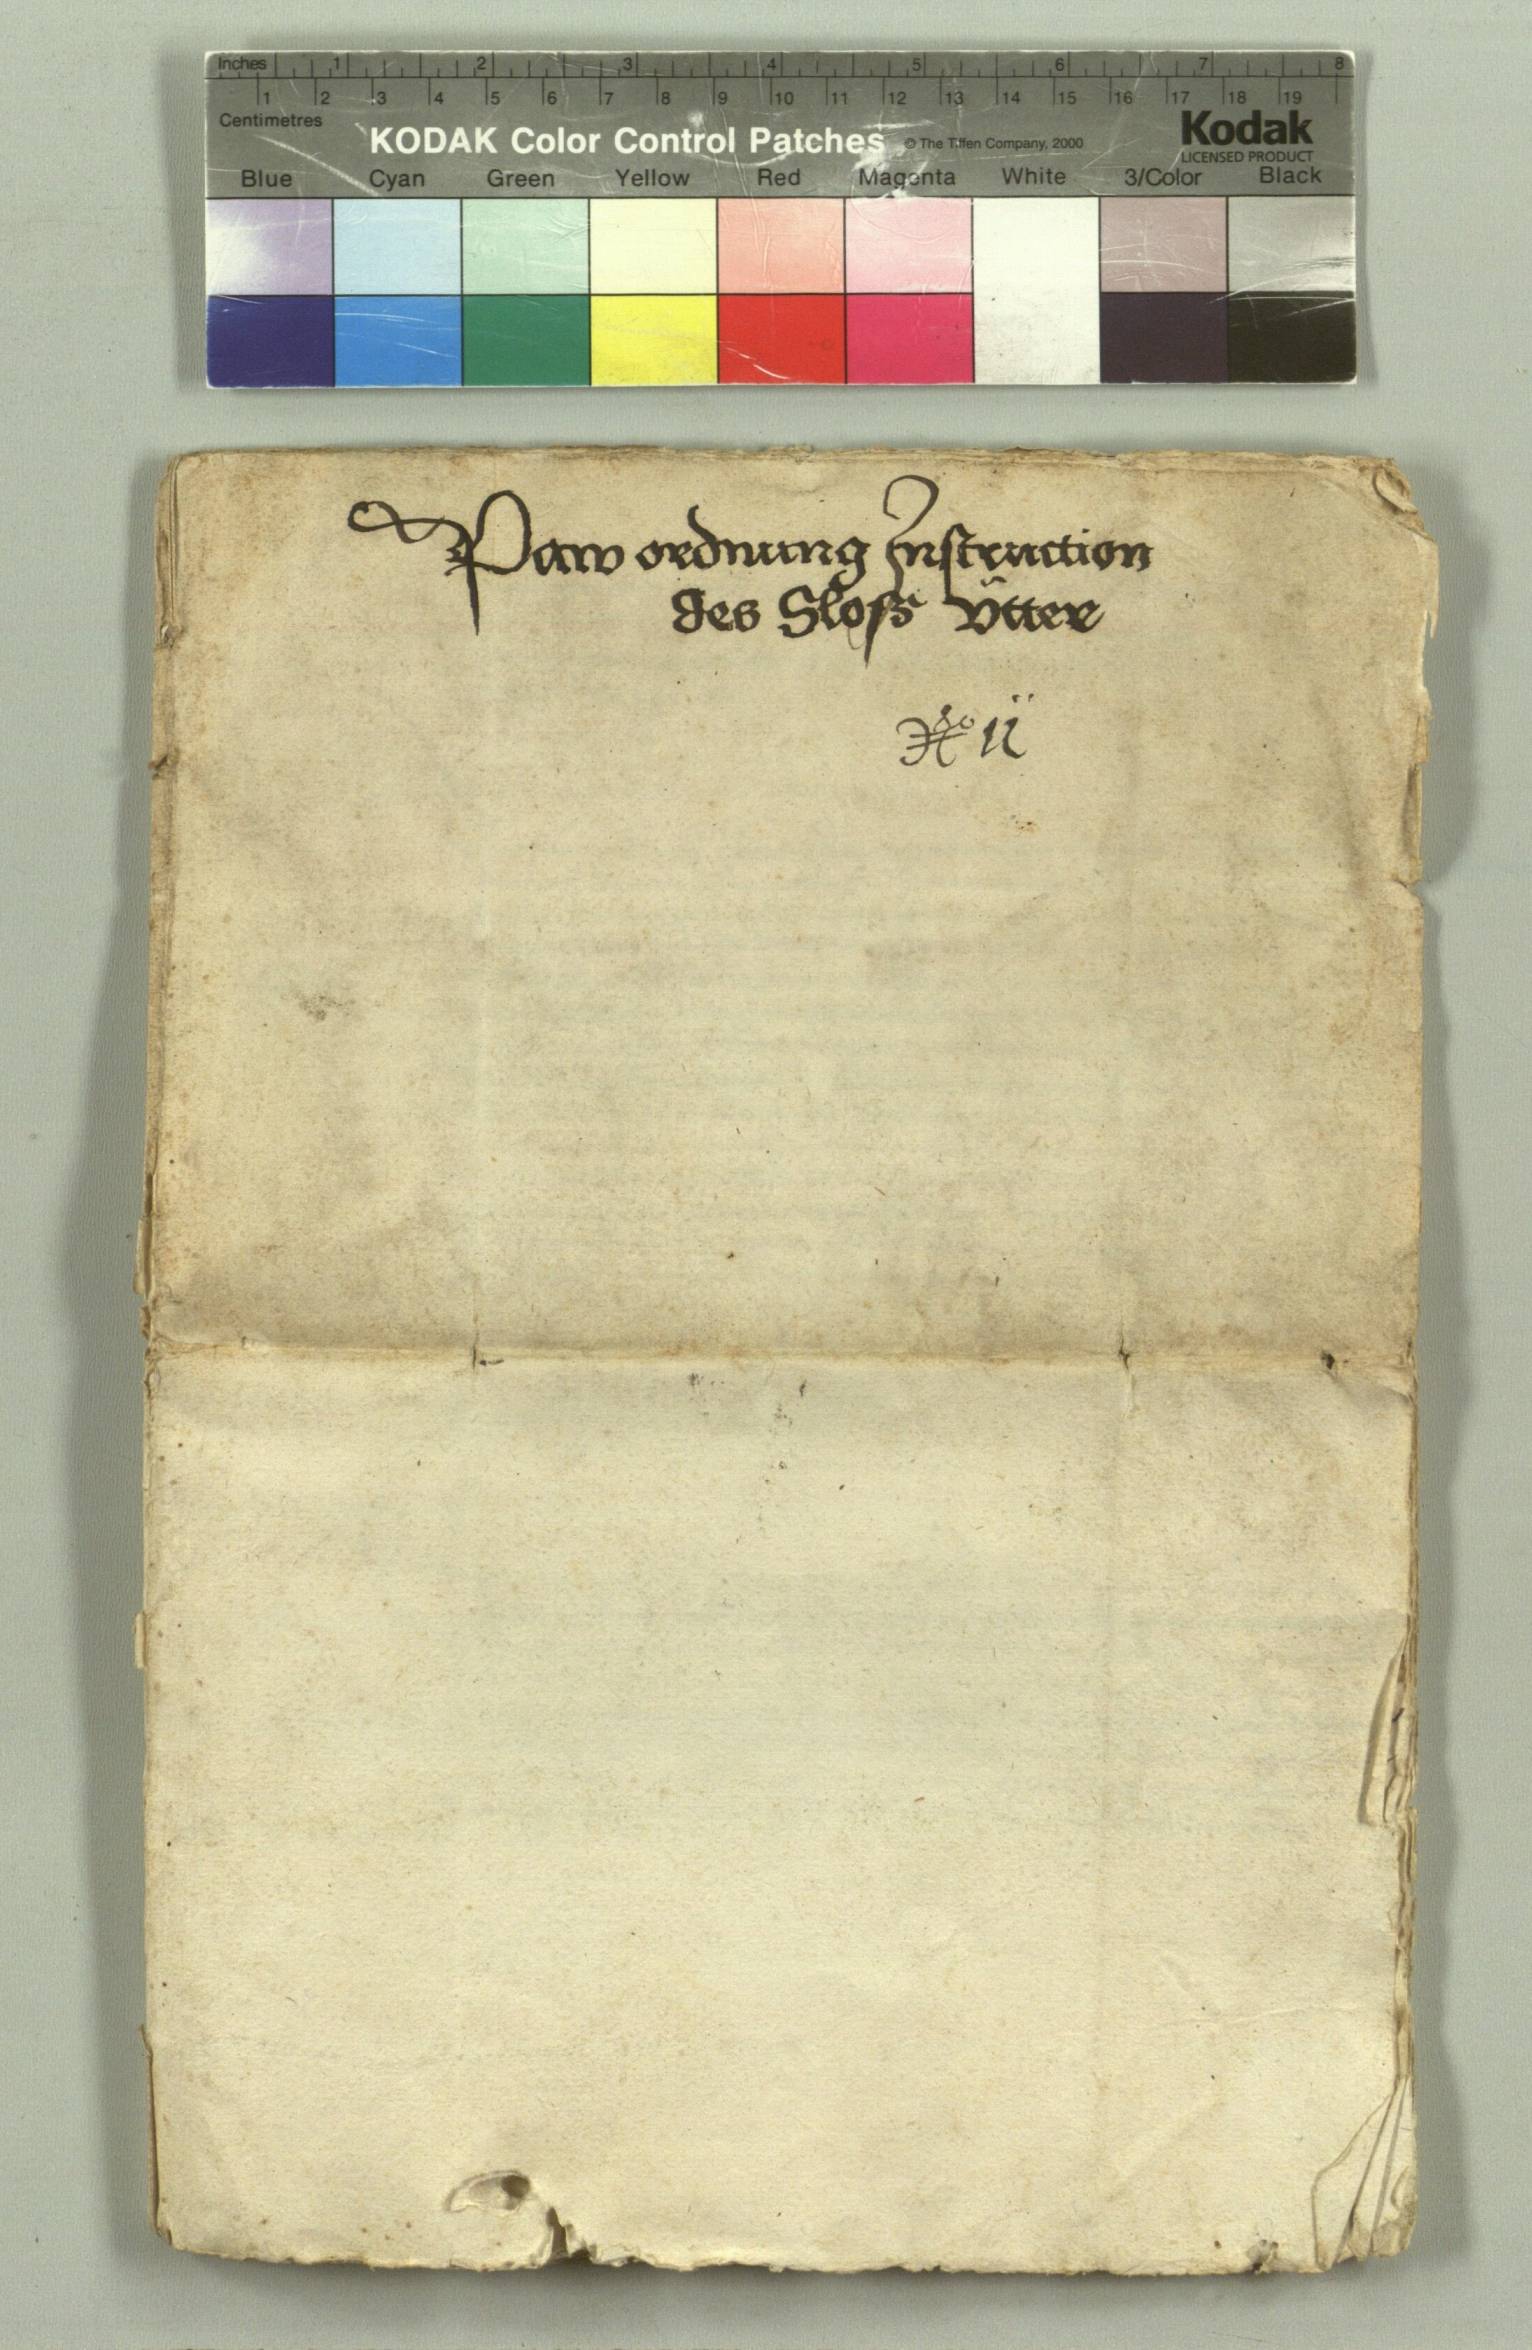 Inches 1 2 3 4 5 6 7 8
1 2 3 4 5 6 7 8 9 10 11 12 13 14 15 16 17 18 19
Centimetres
KODAK Color Control Patches © The Tiffen Company, 2000 Kodak
LICENSED PRODUCT
Blue Cyan Green Yellow Red Magenta White 3/Color Black
Paw ordnung Instruction
des Sloss Ütter
ii